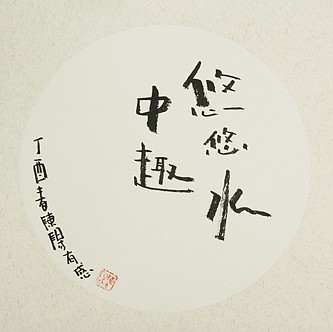 悠悠水
中趣
丁酉春陳有感